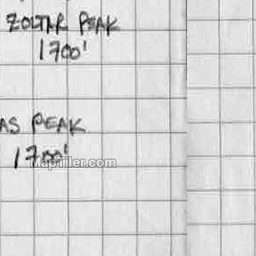 ZOLTAR PEAK
1700'
AS PEAK
1700'
MapTiler.com